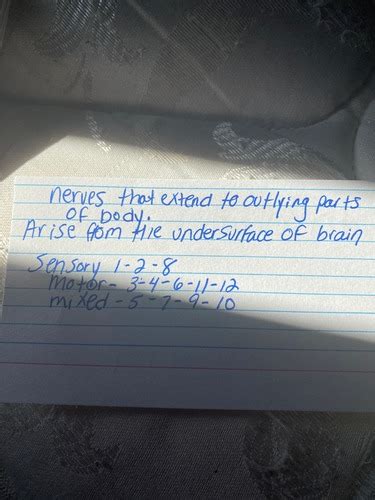 nerves that extend to outlying parts
of body.
Arise from the undersurface of brain
Sensory 1-2-8
motor- 3-4-6-11-12
mixed-5-7-9-10